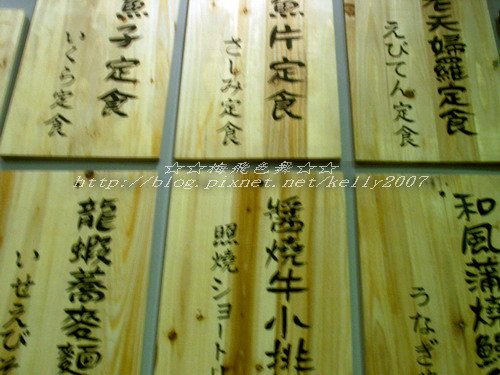 魚子定食
いくら定食
魚片定食
さしみ定食
天婦羅定食
えびてん定食
☆☆梅飛色舞☆☆
http://blog.pixnet.net/kelly2007
龍蝦蕎麥麵
いせえび
醬燒牛小排
照燒ショート
和風蒲燒鰻
うなぎ